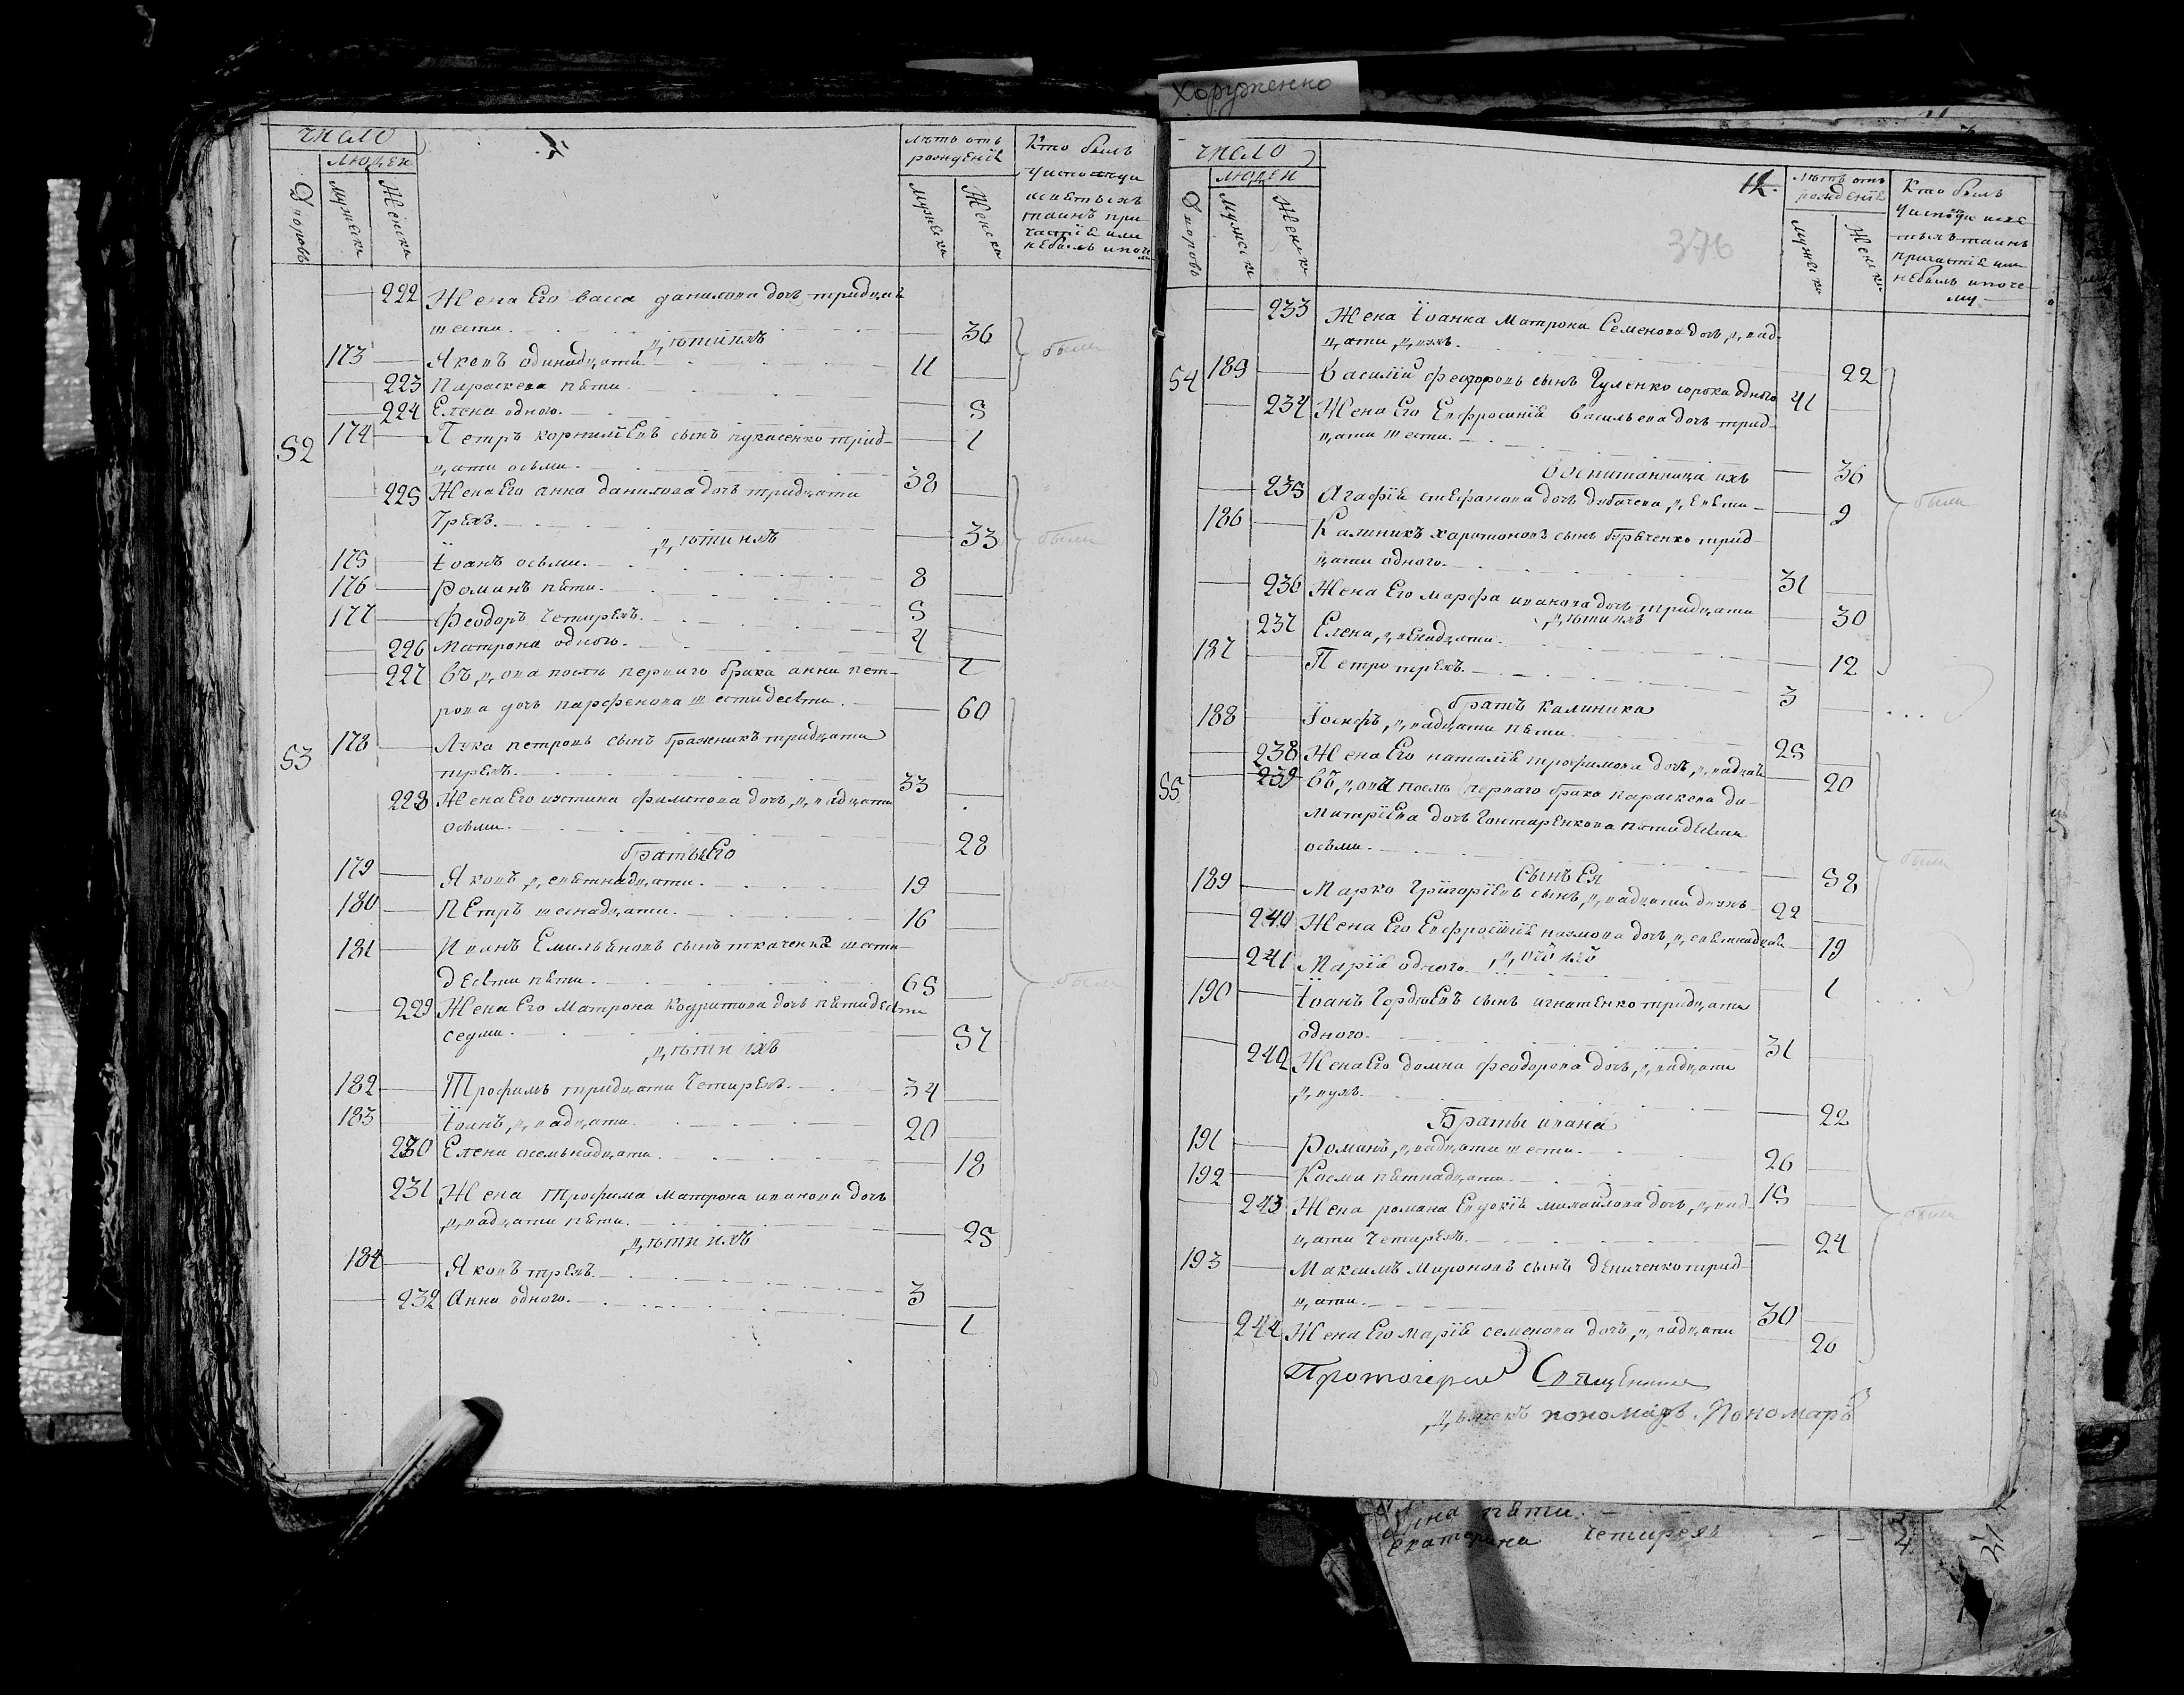 Хоруженко
число
людей
Дворовъ
Мужеска
Женска
лѣтъ отъ
рожденія
мужеска
Женска
Кто былъ
уисповѣди
исвятыхъ
таинъ при
частія или
небылъ ипоче
му
222 Жена Его васса данилова дочь тридцать
шести. 36
дѣти ихъ
173 Яковъ одинадцати. 11
223 Параскева пяти 5
224 Елена одного. 1
52 174 Петръ корнилїевъ сынъ лукасенко трид-
цати осьми. 38
225 Жена Его анна данилова дочь тридцати
Трехъ. 33
дѣти ихъ
175 Їоанъ осьми. 8
176 романъ пяти. 5
177 феодоръ Четирехъ. 4
226 матрона одного. 1
227 Въдова послѣ перваго брака анна пет-
рова дочь парфенова шестидесяти. 60
53 178 Лука петровъ сынъ бражникъ тридцати
трехъ. 33
228 Жена Его устина филипова дочь двадцати
осьми. 28
братья Его
179 Яковъ девятнадцати. 19
180 ПЕтръ шеснадцати. 16
181 Иванъ Емильяновъ сынъ ткаченко шести
десяти пяти. 65
229 Жена Его Матрона Кодратова дочь пятидесяти
седми. 57
дѣти ихъ
182 Трофимъ тридцати Четирехъ. 34
183 Їоанъ двадцати. 20
230 Елена осемьнадцати. 18
231 Жена Трофима Матрона иванова дочь
двадцати пяти. 25
дѣти ихъ
184 Яковъ трехъ. 3
232 Анна одного. 1
были
были
были
число
людей
12.
376
Дворовъ
Мужеска
Женска
лѣтъ отъ
рожденія
Мужеска
Женска
Кто былъ
уисповѣди исвя
тыхъ таинъ
причастія или
небылъ ипоче-
му
233 Жена Їоанна Матрона Семенова дочь двад-
цати двухъ. 22
54 189 Василїй феодоровъ сынъ Гуленко сорока одного 41
234 Жена Его Евфросинїя васильева дочь трид-
цати шести. 36
воспитанница ихъ
235 Агафїя стефанова дочь девяти 9
186 Калиникъ харитоновъ сынъ трид
цати одного. 31
236 Жена Его марфа иванова дочь тридцати 30
дѣти ихъ
237 Елена двенадцати. 12
187 Петро трехъ. 3
братъ Калиника
188 Їосифъ двадцати пяти 25
238 Жена Его наталїя трофимова дочь двадцать 20
55 239 Въдова послѣ перваго брака параскева ди-
митрїева дочь Гонтаренкова пятидесяти
осьми. 58
Сынъ Ея
189 Марко Григорїевъ сынъ двадцати двухъ 22
240 Жена Его Евфросинїя наумова дочь девятнадцать 19
дочь ихъ
241 Марїя одного 1
190 Їоанъ Гордїевъ сынъ игнатенко тридцати
одного. 31
242 Жена Его домна феодорова дочь двадцати
двухъ. 22
Браты ивана
191 Романъ двадцати шести. 26
192 Косма пятнадцати. 15
243 Жена романа Евдокїя михайлова дочь двад-
цати Четирехъ. 24
193 Максимъ Мироновъ сынъ дениченко трид
цати. 30
244 Жена Его марїя семенова дочь двадцати 20
были
были
были
Протоиерей Священникъ
Дьячекъ пономаръ. Пономаръ
пяти.
Екатерина Четирехъ 4